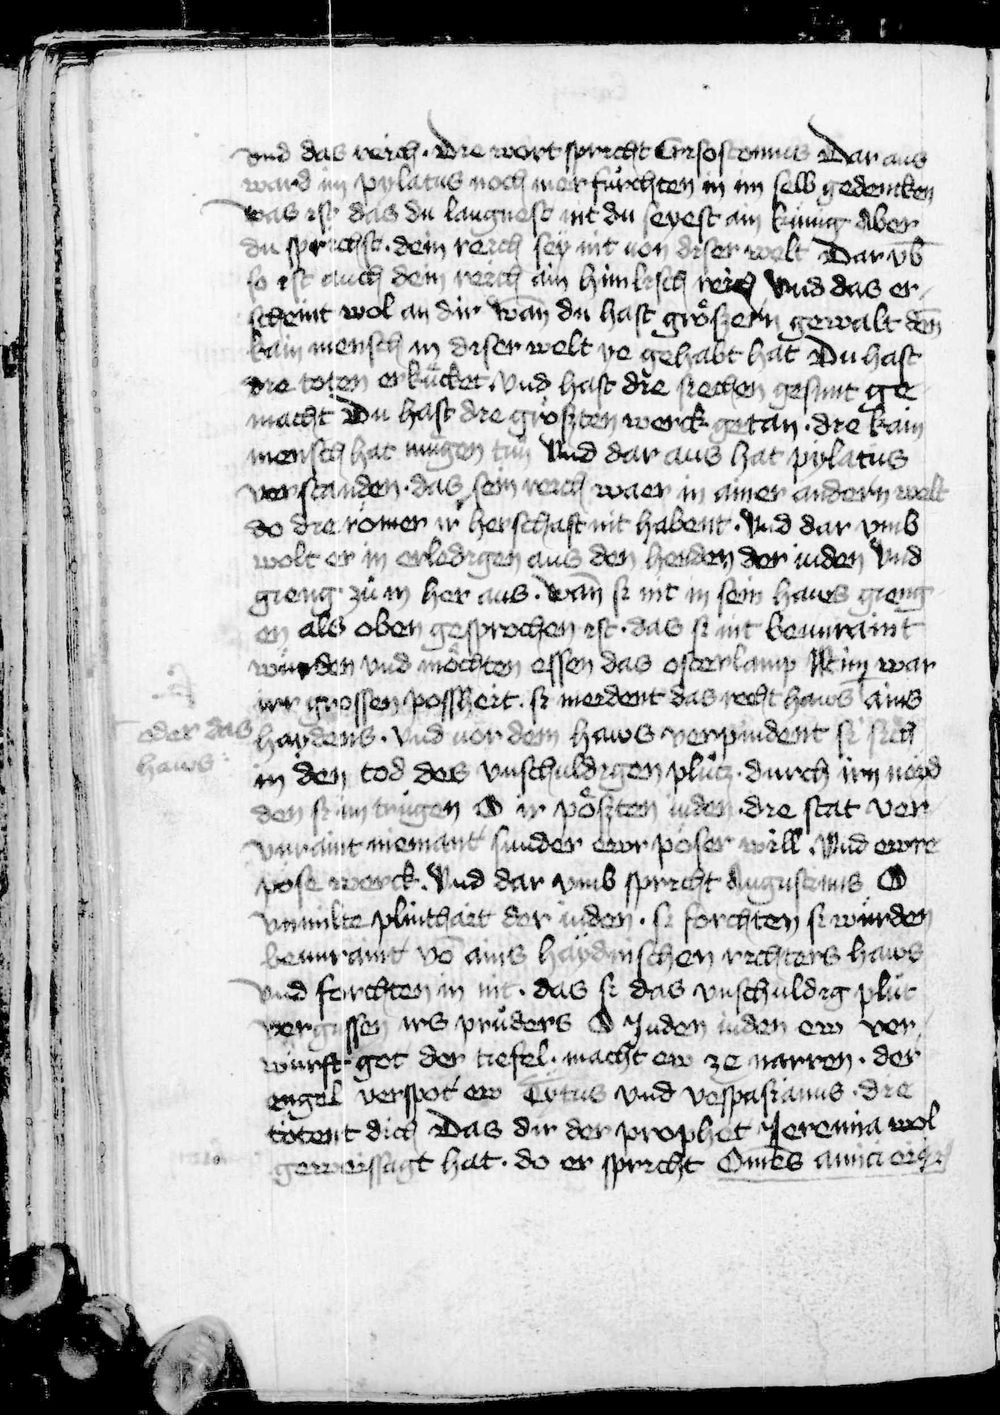 vnd das reich · Die wort spricht Crisostomus Dar aus
ward im pylatus noch mer fürchten in im selb gedencken
was ist das du laugnest nit du seyest ain künig Aber
du sprichst · dein reich sey nit von diser welt Dar vb̄
so ist auch dein reich ain himlisch reich Vnd das er
scheint wol an dir wan̄ du hast gröszern gewalt den̄
kain mensch in diser welt ye gehabt hat Du hast
die toten erkücket · Vnd hast die siechen gesunt ge
macht Du hast die gröszten werck getan · die kain
mensch hat mügen tün Vnd dar aus hat pylatus
verstanden · das sein reich waer in ainer andern welt
do die römer ir herschaft nit habent · Vnd dar vmb
wolt er in erledigen aus den henden der iuden Vnd
gieng zü in her aus · wan̄ si nit in sein haws gieng
en als oben gesprochen ist · das si nit bemiraint
würden vnd möchten essen das osterlamp war
irr grossen possheit · si meident das recht haws ains
oder das haws
haydens · Vnd vor dem haws verpindent si sich
in den tod des vnschuldigen plütz · durch irn neyd
den si im trügen O ir pöszten iuden · die stat ver
vnraint niemant sunder ewr pöser will · Vnd ewre
pose werck · Vnd dar vmb spricht Augustinus O
vnmilte plinthait der iuden · si forchten si würden
bemiraint vō ains haydnischen richters haws
vnd forchten in nit · das si das vnschuldig plüt
vergussen irs prüders O Juden iuden ew ver
würft got der tiefel · macht ew ze narren · der
engel verspot ew Tytus vnd vespasianus · die
tötent dich Das dir der prophet Jeremia wol
geweissagt hat · do er spricht Om̄es amici